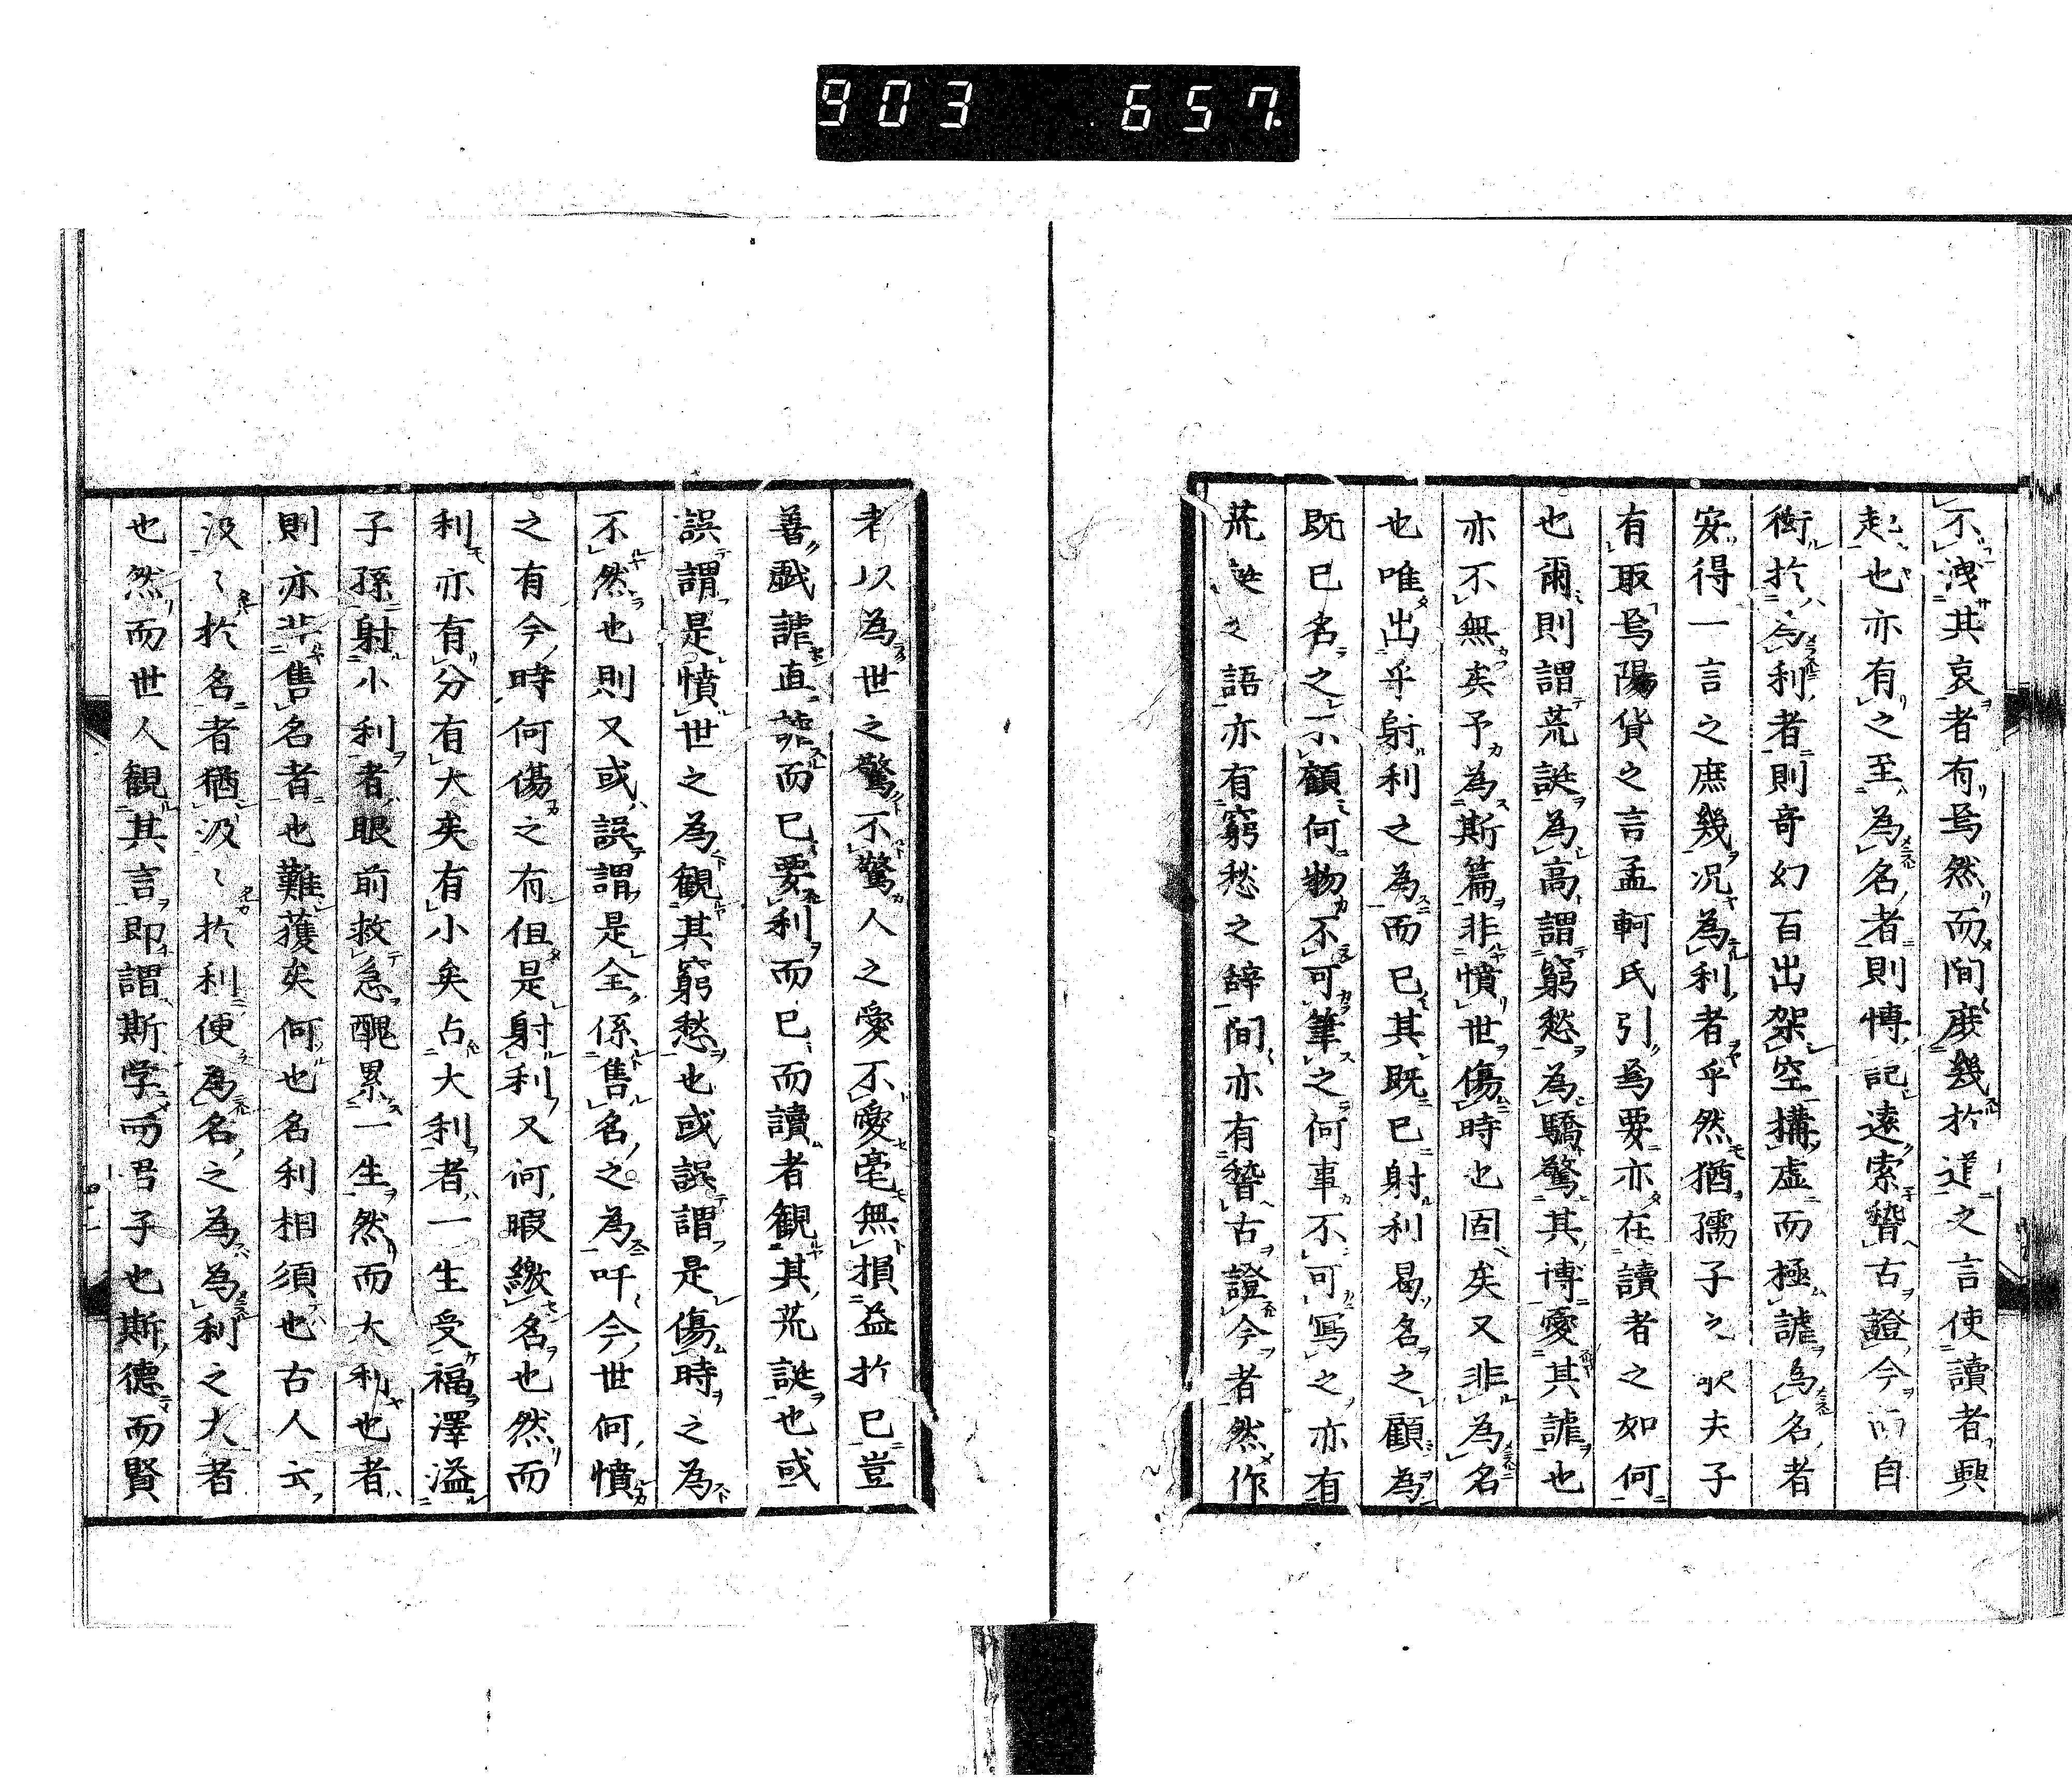 903 657
不洩其哀者有焉然而間庶幾於道之言使讀者興
起也亦有之至為名者則博記遠索誓古證今而自
衒於為利者則奇幻百出架空構虚而極謔為名者
安得一言之庶幾况為利者乎然猶孺子之歌夫子
有取焉陽貨之言孟軻氏引焉要亦在讀者之如何
也爾則謂荒誕為高謂窮愁為驕驚其博愛其謔也
亦不無矣予為斯篇非憤世傷時也固矣又非為名
也唯出乎射利之為而已其既已射利曷名之顧為
既已名之不顧何物不可筆之何事不可写之亦有
荒誕之語亦有窮愁之辞間亦有誓古證今者然作
者以為世之驚不驚人之愛不愛毫無損益於已豈
善戯謔直謔而已要利而已而讀者観其荒誕也或
誤謂是憤世之為観其窮愁也或誤謂是傷時之為
不然也則又或誤謂是全係售名之為吁今世何憤
之有今時何傷之有但是射利又何暇繳名也然而
利亦有分有大矣有小矣占大利者一生受福澤溢
子孫射小利者眼前救急醜累一生然而大利也者
則亦非售名者也難獲矣何也名利相須也古人云
汲〻於名者猶汲〻於利便為名之為為利之大者
也然而世人観其言即謂斯学而君子也斯德而賢